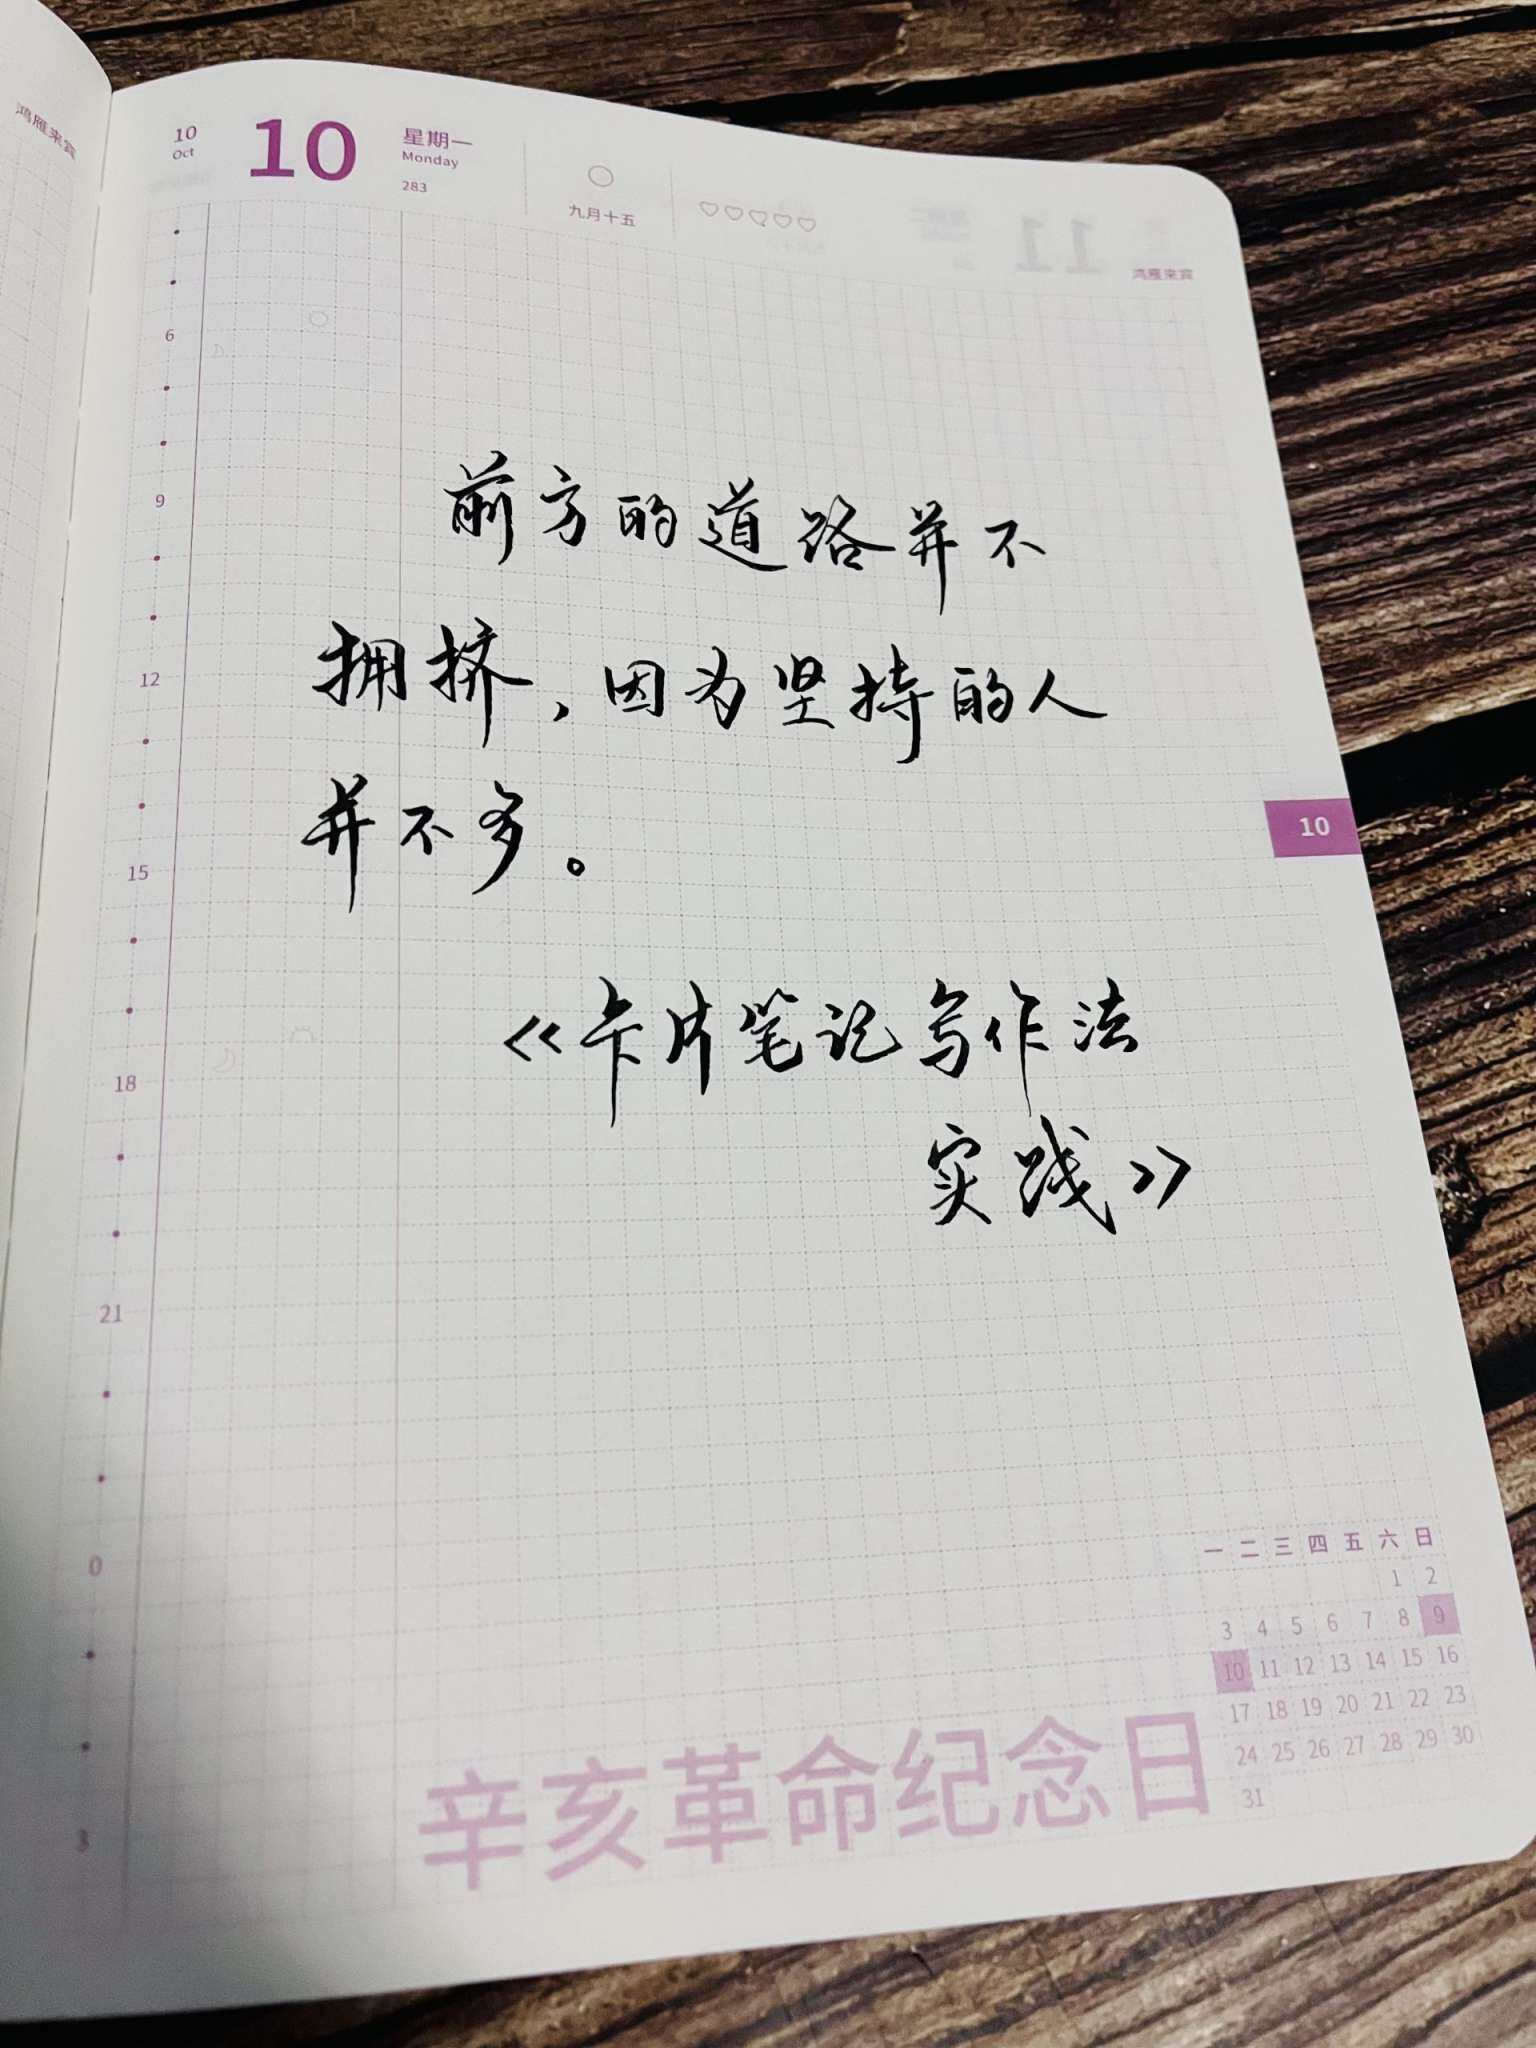 鸿雁来宾
10
Oct
10
星期一
Monday
283
九月十五
11
鸿雁来宾
6
9
12
15
18
21
0
3
前方的道路并不
拥挤，因为坚持的人
并不多。
《卡片笔记写作法
实践》
10
一 二 三 四 五 六 日
1 2
3 4 5 6 7 8 9
10 11 12 13 14 15 16
17 18 19 20 21 22 23
24 25 26 27 28 29 30
31
辛亥革命纪念日